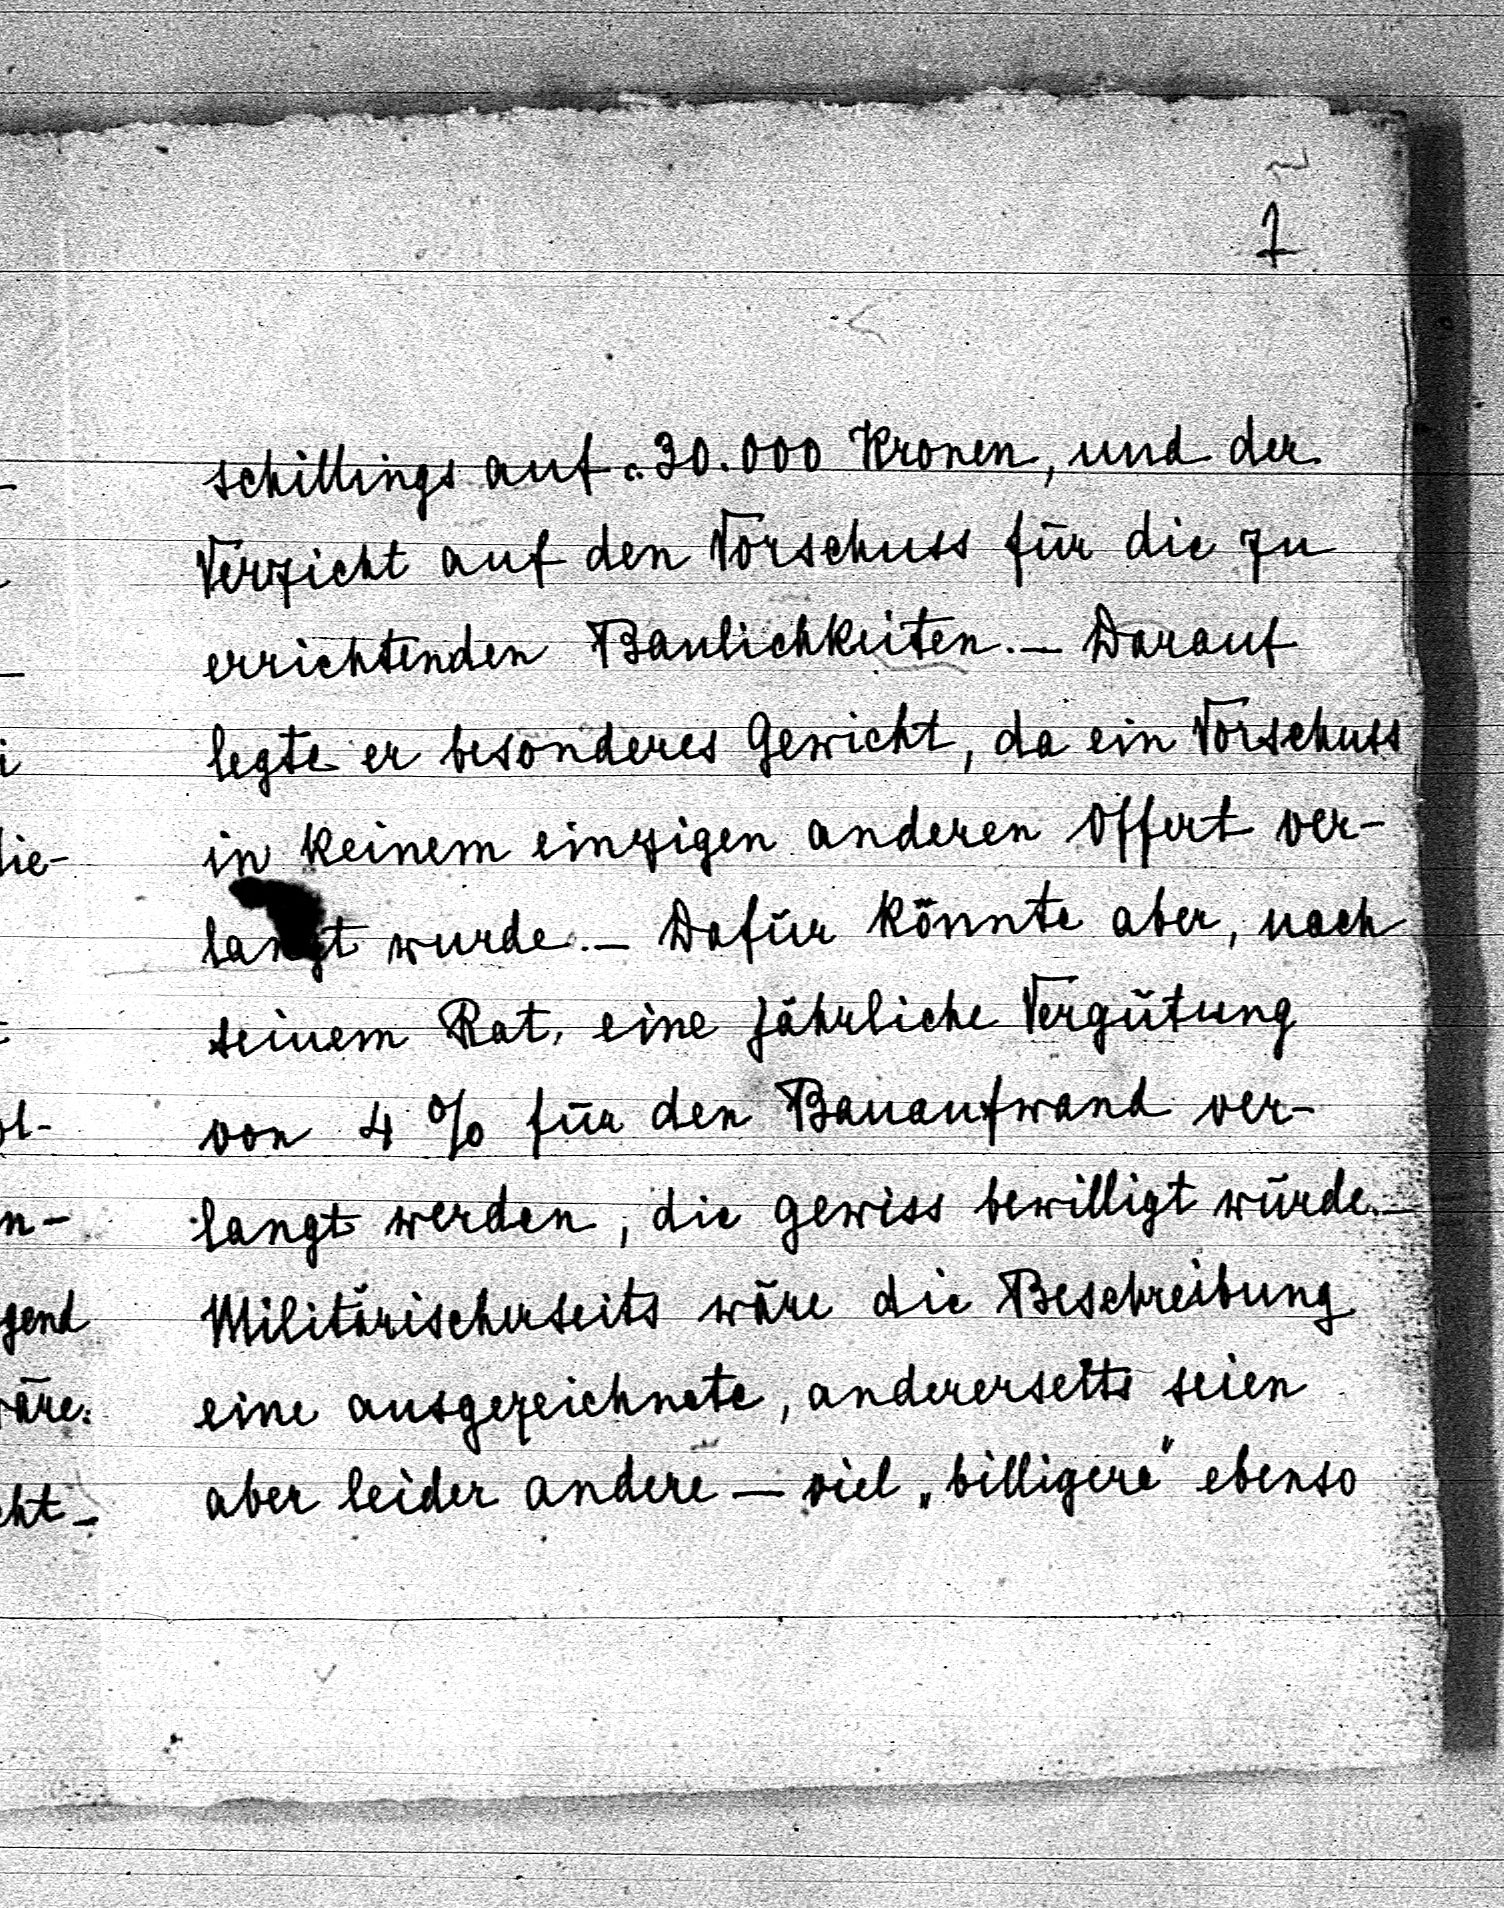 1
schillings auf c. 30.000 Kronen, und der
Verzicht auf den Vorschuss für die zu
errichtenden Baulichkeiten. — Darauf
legte er besonderes Gewicht, da ein Vorschuss
in keinem einzigen anderen Offert ver-
langt wurde. — Dafür könnte aber, nach
seinem Rat, eine jährliche Vergütung
von 4 % für den Bauaufwand ver-
langt werden, die gewiss bewilligt würde. —
Militärischerseits wäre die Beschreibung
eine ausgezeichnete, andererseits seien
aber leider andere — viel „billigere" ebenso